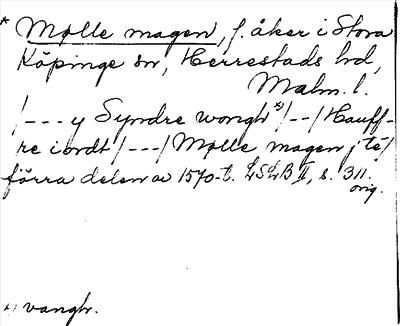 * Mølle magen, f. åker i Stora
Köpinge sn, Herrestads hd,
Malm. l.
/--- y Syndre wongh *) /--/ Hauff-
re iordt /---/ Mølle magen j té/
förra delen av 1570-t. LSLB II, s. 311.
orig.
*) vangh.